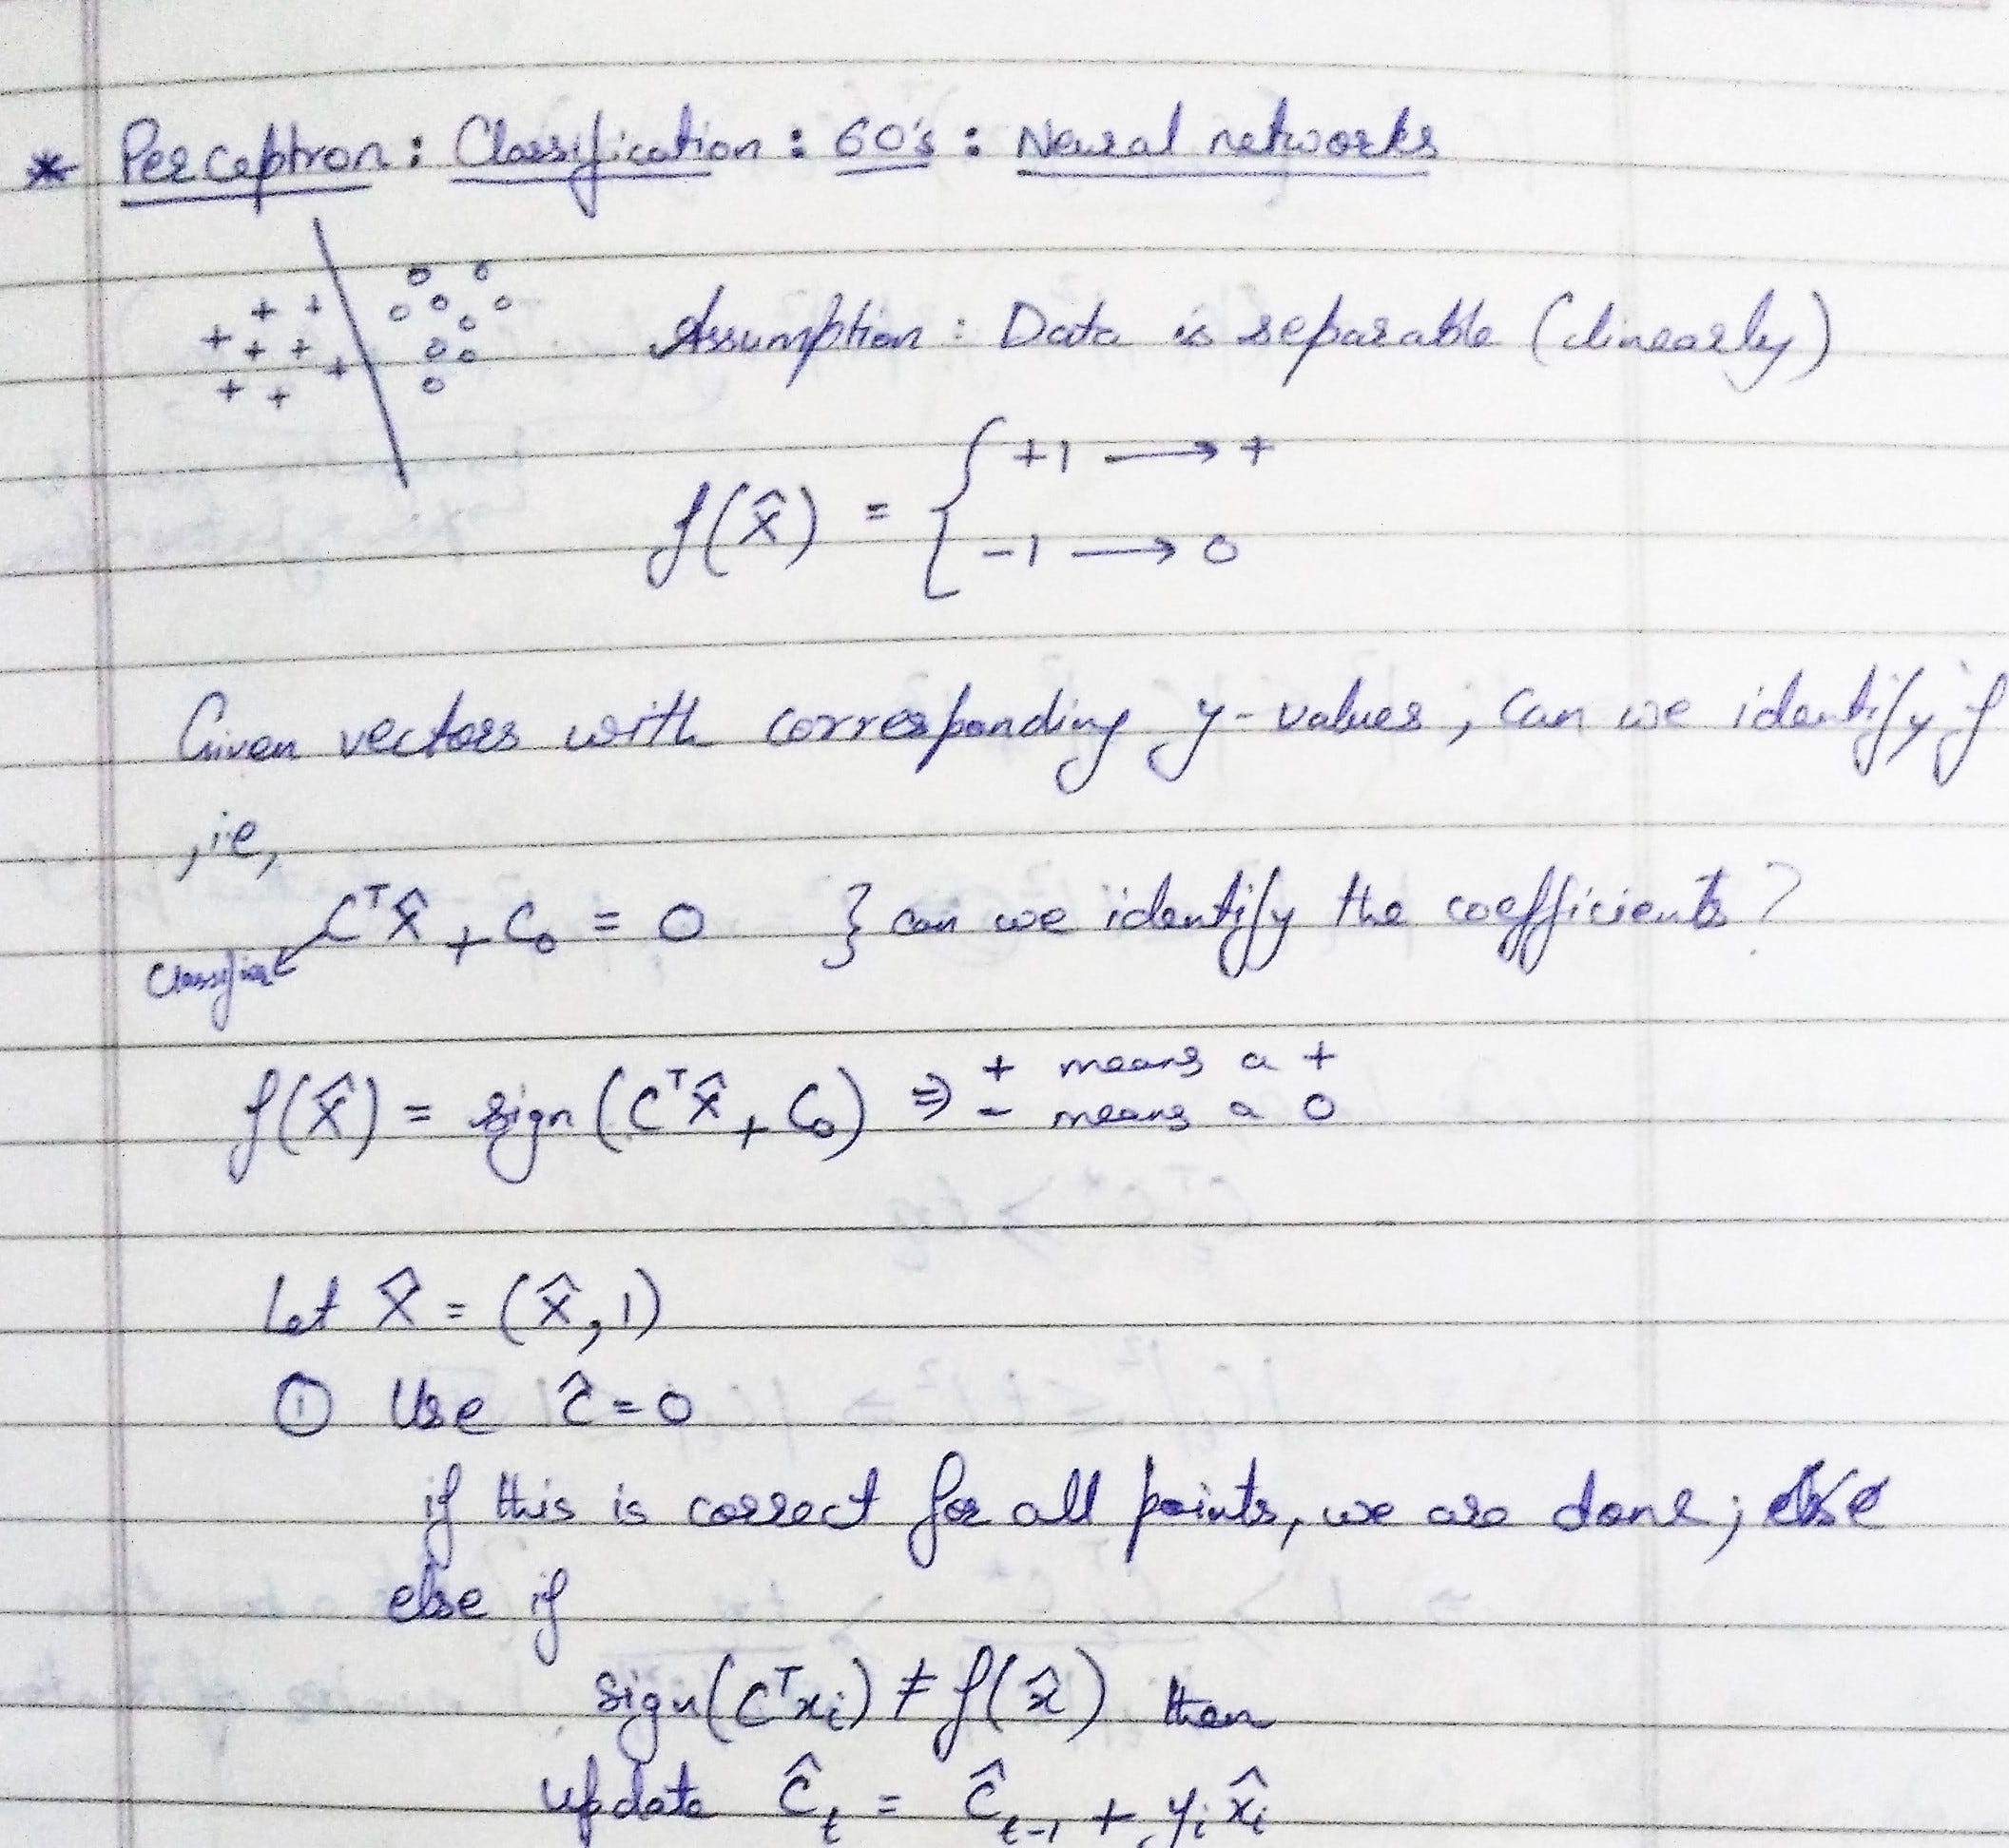 * Perceptron : Classification : 60's : Neural networks
Assumption : Data is separable (linearly)
f(x̂) = { +1 → +
-1 → 0
Given vectors with corresponding y-values, can we identify f
, ie,
Cᵀx̂ + C₀ = 0 } can we identify the coefficients?
Classifier
f(x̂) = sign(Cᵀx̂ + C₀) ⇒ + means a +
- means a 0
Let x̂ = (x̂, 1)
① Use ĉ = 0
if this is correct for all points, we are done; else
else if
sign(Cᵀxᵢ) ≠ f(x̂) then
update ĉₜ = ĉₜ₋₁ + yᵢx̂ᵢ